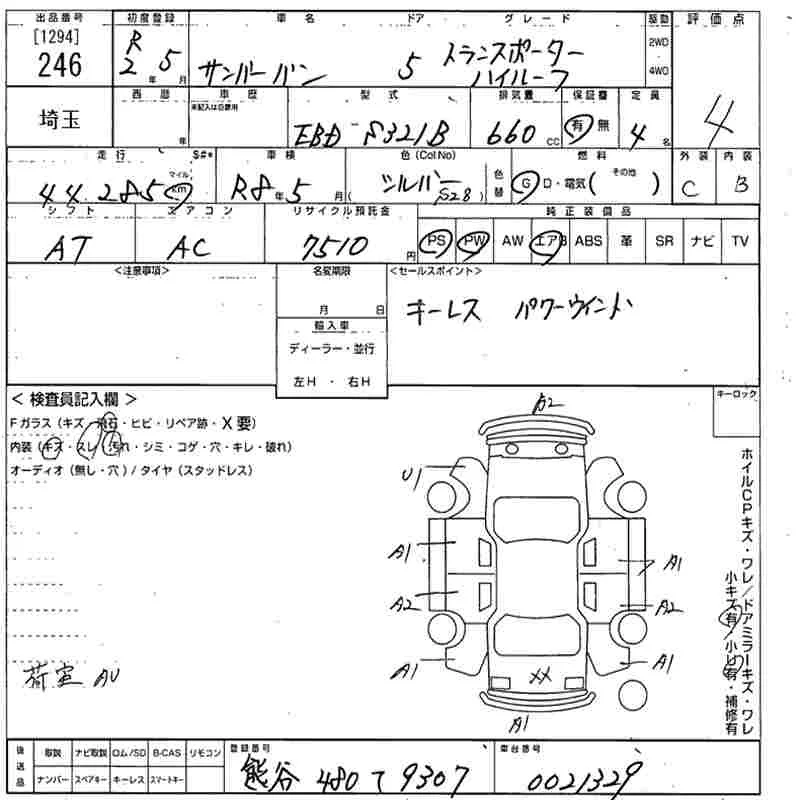 出品番号 初度登録 車名 ドア グレード 駆動 評価点
[1294] 246 R2年5月 サンバーバン 5 トランスポーター ハイルーフ 2WD 4WD
埼玉 西暦 年 車歴 未記入は自家用 型式 EBD S321B 排気量 660cc 保証書 有 無 定員 4名 4
走行 44,285 マイル km $#* 車検 R8年5月 色(ColNo) シルバー (S28) 色替 燃料 G D・電気( その他 ) 外装 C 内装 B
シフト AT エアコン AC リサイクル預託金 7510円 純正装備品 PS PW AW エアB ABS 革 SR ナビ TV
<注意事項> 名変期限 月 日 <セールスポイント>
キーレス パワーウインド
輸入車
ディーラー・並行
左H ・ 右H
<検査員記入欄> キーロック
Fガラス(キズ・飛石・ヒビ・リペア跡・X要)
内装(キズ・スレ・汚れ・シミ・コゲ・穴・キレ・破れ)
オーディオ(無し・穴)/タイヤ(スタッドレス)
A2
U1
A1 A1
A2 A2
A1 XX A1
A1
荷室 AU
ホイルCPキズ・ワレ/ドアミラーキズ・ワレ
小キズ有/小U有・補修有
後送品 取説 ナビ取説 ロム/SD B-CAS リモコン 登録番号 車台番号
ナンバー スペアキー キーレス スマートキー 熊谷 480 て 9307 0021329